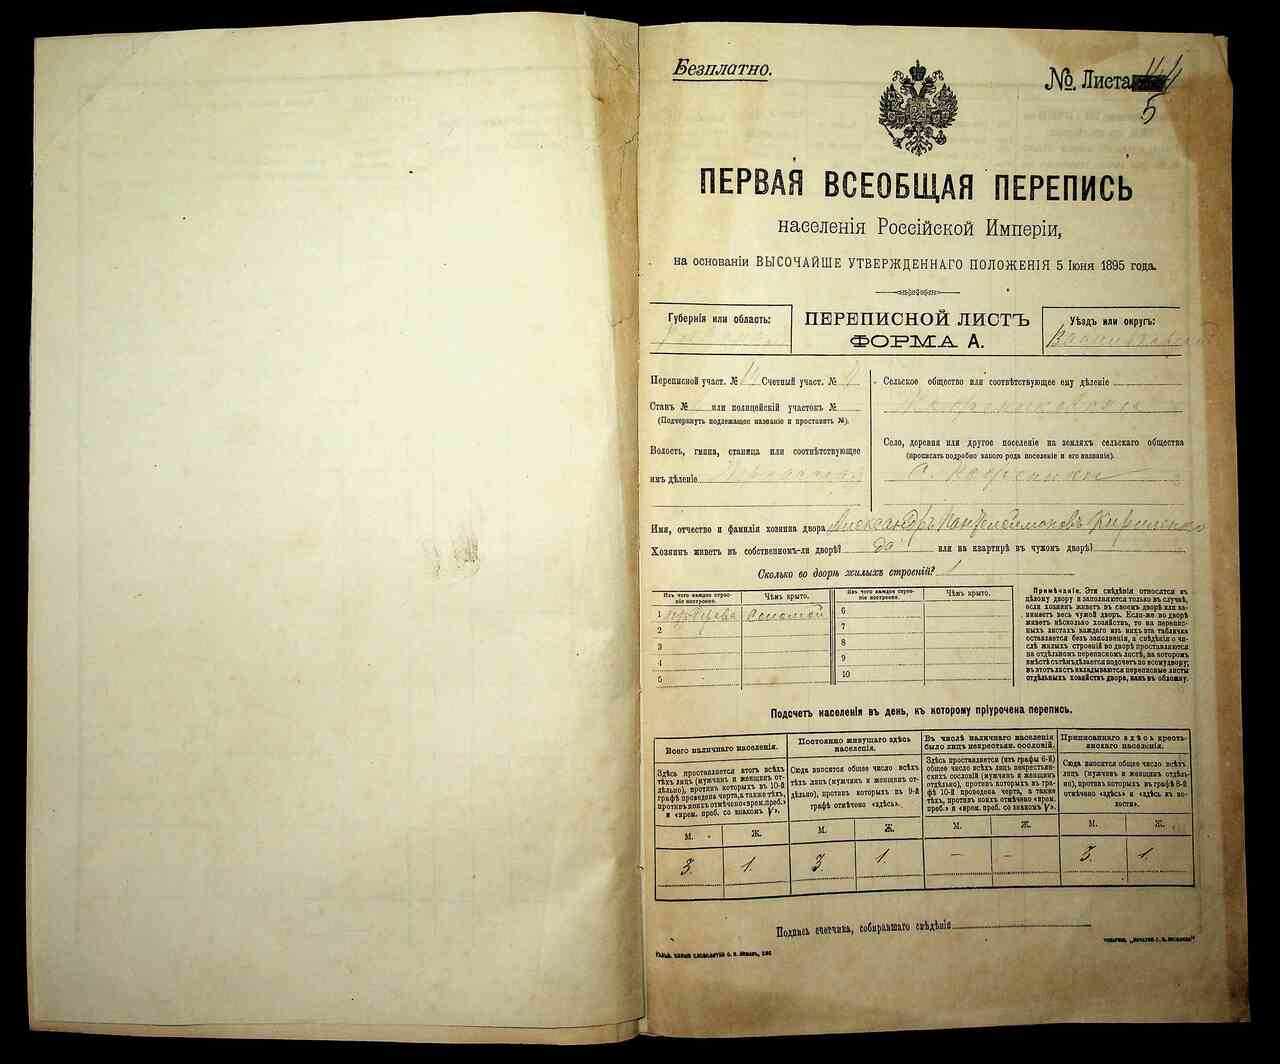 Безплатно.
№ Листа 44
5
ПЕРВАЯ ВСЕОБЩАЯ ПЕРЕПИСЬ
населенія Россійской Имперіи,
на основаніи ВЫСОЧАЙШЕ УТВЕРЖДЕННАГО ПОЛОЖЕНІЯ 5 Іюня 1895 года.
Губернія или область:
ПЕРЕПИСНОЙ ЛИСТЪ
ФОРМА А.
Уѣздъ или округъ:
Переписной участ. № Счетный участ. №
Станъ № или полицейскій участокъ №
(Подчеркнуть подлежащее названіе и проставить №).
Волость, гмина, станица или соотвѣтствующее
имъ дѣленіе
Сельское общество или соотвѣтствующее ему дѣленіе
Село, деревня или другое поселеніе на земляхъ сельскаго общества
(прописать подробно какого рода поселеніе и его названіе).
с.
Имя, отчество и фамилія хозяина двора Александръ Пантелеймоновъ Кириленко
Хозяинъ живетъ въ собственномъ-ли дворѣ? да или на квартирѣ въ чужомъ дворѣ?
Сколько во дворѣ жилыхъ строеній? 1
Изъ чего каждое строеніе построено.
Чѣмъ крыто.
Изъ чего каждое строеніе построено.
Чѣмъ крыто.
1 Соломой
2
3
4
5
6
7
8
9
10
Примѣчаніе. Эти свѣдѣнія относятся къ
цѣлому двору и заполняются только въ случаѣ,
если хозяинъ живетъ въ своемъ дворѣ или занимаетъ
весь чужой дворъ. Если-же во дворѣ
живетъ нѣсколько хозяйствъ, то на переписныхъ
листахъ каждаго изъ нихъ эта табличка
оставляется безъ заполненія, а свѣдѣнія о числѣ
жилыхъ строеній во дворѣ проставляются
на отдѣльномъ переписномъ листѣ, на которомъ
вмѣстѣ съ тѣмъ дѣлается подсчетъ по всему двору;
въ этотъ листъ вкладываются переписные листы
отдѣльныхъ хозяйствъ двора, какъ въ обложку.
Подсчетъ населенія въ день, къ которому пріурочена перепись.
Всего наличнаго населенія.
Здѣсь проставляется итогъ всѣхъ
тѣхъ лицъ (мужчинъ и женщинъ отдѣльно),
противъ которыхъ въ 10-й
графѣ проведена черта, а также тѣхъ,
противъ коихъ отмѣчено «врем. преб.»
и «врем. преб. со знакомъ V».
Постоянно живущаго здѣсь
населенія.
Сюда вносится общее число всѣхъ
тѣхъ лицъ (мужчинъ и женщинъ отдѣльно),
противъ которыхъ въ 9-й
графѣ отмѣчено «здѣсь».
Въ числѣ наличнаго населенія
было лицъ некрестьян. сословій.
Здѣсь проставляется (изъ графы 6-й)
общее число всѣхъ лицъ некрестьянскихъ
сословій (мужчинъ и женщинъ
отдѣльно), противъ которыхъ въ графѣ
10-й проведена черта, а также
тѣхъ, противъ коихъ отмѣчено «врем.
преб.» и «врем. преб. со знакомъ V».
Приписаннаго здѣсь крестьянскаго
населенія.
Сюда вносится общее число всѣхъ
лицъ (мужчинъ и женщинъ отдѣльно),
противъ которыхъ въ графѣ 8-й
отмѣчено «здѣсь» и «здѣсь къ волости».
М. Ж. М. Ж. М. Ж. М. Ж.
3. 1. 3. 1. – – 3. 1.
Подпись счетчика, собиравшаго свѣдѣнія